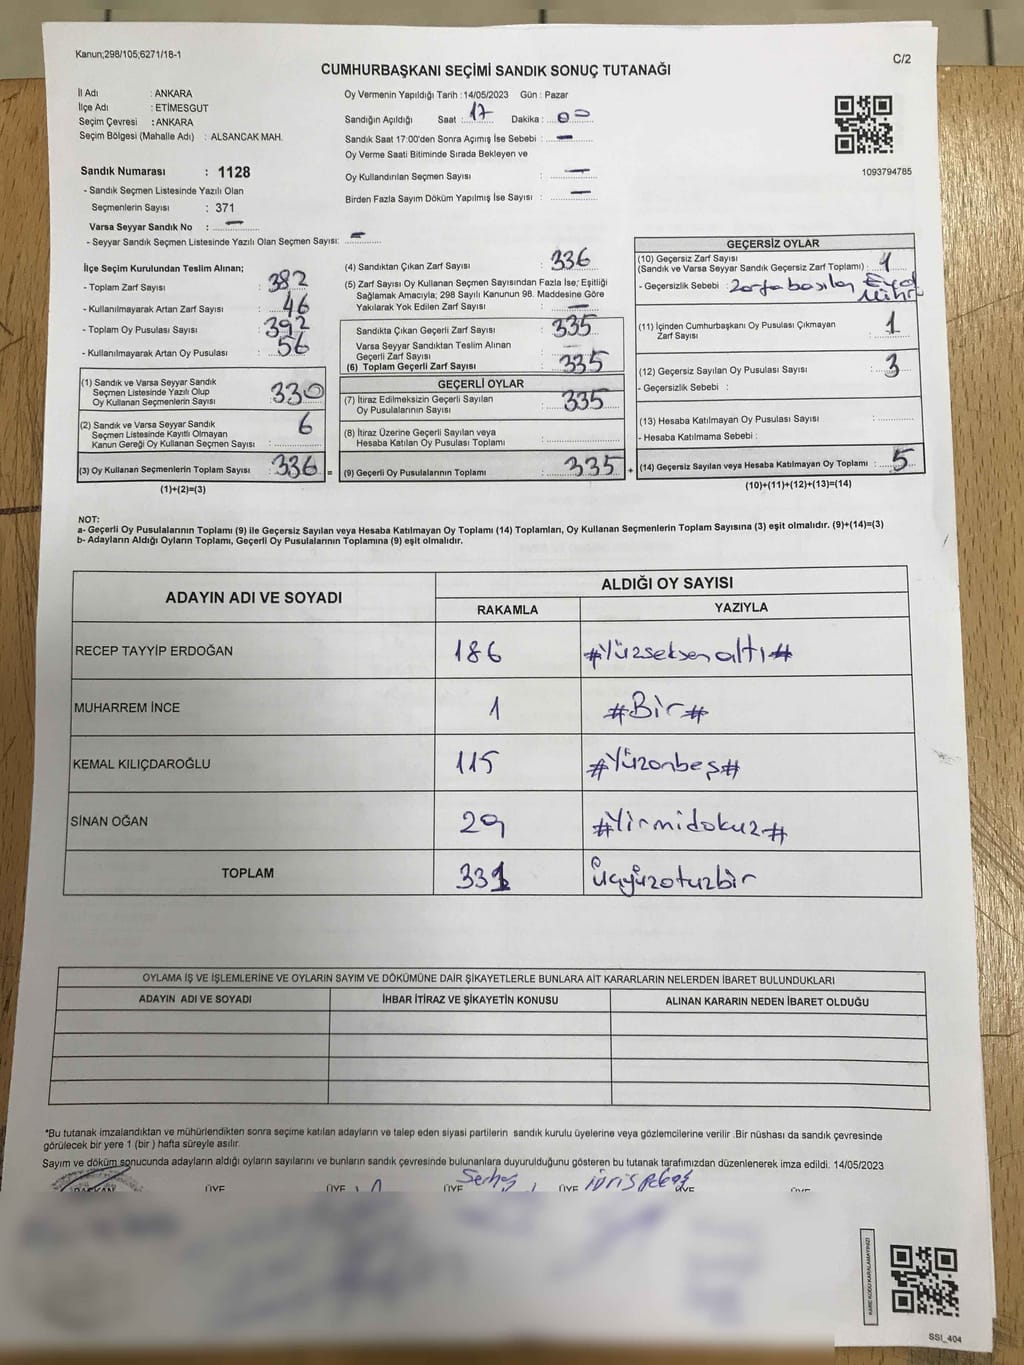 Kanun;298/105;6271/18-1
C/2
CUMHURBAŞKANI SEÇİMİ SANDIK SONUÇ TUTANAĞI
İl Adı : ANKARA
İlçe Adı : ETİMESGUT
Seçim Çevresi : ANKARA
Seçim Bölgesi (Mahalle Adı) : ALSANCAK MAH.
Oy Vermenin Yapıldığı Tarih : 14/05/2023 Gün : Pazar
Sandığın Açıldığı Saat : 17 Dakika : 00
Sandık Saat 17:00'den Sonra Açımış İse Sebebi : —
Oy Verme Saati Bitiminde Sırada Bekleyen ve
Oy Kullandırılan Seçmen Sayısı : —
Birden Fazla Sayım Döküm Yapılmış İse Sayısı : —
1093794785
Sandık Numarası : 1128
- Sandık Seçmen Listesinde Yazılı Olan
Seçmenlerin Sayısı : 371
Varsa Seyyar Sandık No : —
- Seyyar Sandık Seçmen Listesinde Yazılı Olan Seçmen Sayısı: —
İlçe Seçim Kurulundan Teslim Alınan;
- Toplam Zarf Sayısı : 382
- Kullanılmayarak Artan Zarf Sayısı : 46
- Toplam Oy Pusulası Sayısı : 392
- Kullanılmayarak Artan Oy Pusulası : 56
(1) Sandık ve Varsa Seyyar Sandık
Seçmen Listesinde Yazılı Olup
Oy Kullanan Seçmenlerin Sayısı : 330
(2) Sandık ve Varsa Seyyar Sandık
Seçmen Listesinde Kayıtlı Olmayan
Kanun Gereği Oy Kullanan Seçmen Sayısı : 6
(3) Oy Kullanan Seçmenlerin Toplam Sayısı : 336 =
(1)+(2)=(3)
(4) Sandıktan Çıkan Zarf Sayısı : 336
(5) Zarf Sayısı Oy Kullanan Seçmen Sayısından Fazla İse; Eşitliği
Sağlamak Amacıyla; 298 Sayılı Kanunun 98. Maddesine Göre
Yakılarak Yok Edilen Zarf Sayısı : —
Sandıkta Çıkan Geçerli Zarf Sayısı : 335
Varsa Seyyar Sandıktan Teslim Alınan
Geçerli Zarf Sayısı : —
(6) Toplam Geçerli Zarf Sayısı : 335
GEÇERLİ OYLAR
(7) İtiraz Edilmeksizin Geçerli Sayılan
Oy Pusulalarının Sayısı : 335
(8) İtiraz Üzerine Geçerli Sayılan veya
Hesaba Katılan Oy Pusulası Toplamı :
(9) Geçerli Oy Pusulalarının Toplamı : 335 +
GEÇERSİZ OYLAR
(10) Geçersiz Zarf Sayısı
(Sandık ve Varsa Seyyar Sandık Geçersiz Zarf Toplamı) : 1
- Geçersizlik Sebebi : Zarfa basılan Evet
Mührü
(11) İçinden Cumhurbaşkanı Oy Pusulası Çıkmayan
Zarf Sayısı : 1
(12) Geçersiz Sayılan Oy Pusulası Sayısı : 3
- Geçersizlik Sebebi :
(13) Hesaba Katılmayan Oy Pusulası Sayısı :
- Hesaba Katılmama Sebebi :
(14) Geçersiz Sayılan veya Hesaba Katılmayan Oy Toplamı : 5
(10)+(11)+(12)+(13)=(14)
NOT:
a- Geçerli Oy Pusulalarının Toplamı (9) ile Geçersiz Sayılan veya Hesaba Katılmayan Oy Toplamı (14) Toplamları, Oy Kullanan Seçmenlerin Toplam Sayısına (3) eşit olmalıdır. (9)+(14)=(3)
b- Adayların Aldığı Oyların Toplamı, Geçerli Oy Pusulalarının Toplamına (9) eşit olmalıdır.
ADAYIN ADI VE SOYADI
ALDIĞI OY SAYISI
RAKAMLA YAZIYLA
RECEP TAYYİP ERDOĞAN 186 #Yüzseksenaltı#
MUHARREM İNCE 1 #Bir#
KEMAL KILIÇDAROĞLU 115 #Yüzonbeş#
SİNAN OĞAN 29 #Yirmidokuz#
TOPLAM 331 Üçyüzotuzbir
OYLAMA İŞ VE İŞLEMLERİNE VE OYLARIN SAYIM VE DÖKÜMÜNE DAİR ŞİKAYETLERLE BUNLARA AİT KARARLARIN NELERDEN İBARET BULUNDUKLARI
ADAYIN ADI VE SOYADI İHBAR İTİRAZ VE ŞİKAYETİN KONUSU ALINAN KARARIN NEDEN İBARET OLDUĞU
*Bu tutanak imzalandıktan ve mühürlendikten sonra seçime katılan adayların ve talep eden siyasi partilerin sandık kurulu üyelerine veya gözlemcilerine verilir .Bir nüshası da sandık çevresinde
görülecek bir yere 1 (bir ) hafta süreyle asılır.
Sayım ve döküm sonucunda adayların aldığı oyların sayılarını ve bunların sandık çevresinde bulunanlara duyurulduğunu gösteren bu tutanak tarafımızdan düzenlenerek imza edildi. 14/05/2023
BAŞKAN ÜYE ÜYE ÜYE ÜYE ÜYE ÜYE
SSI_404